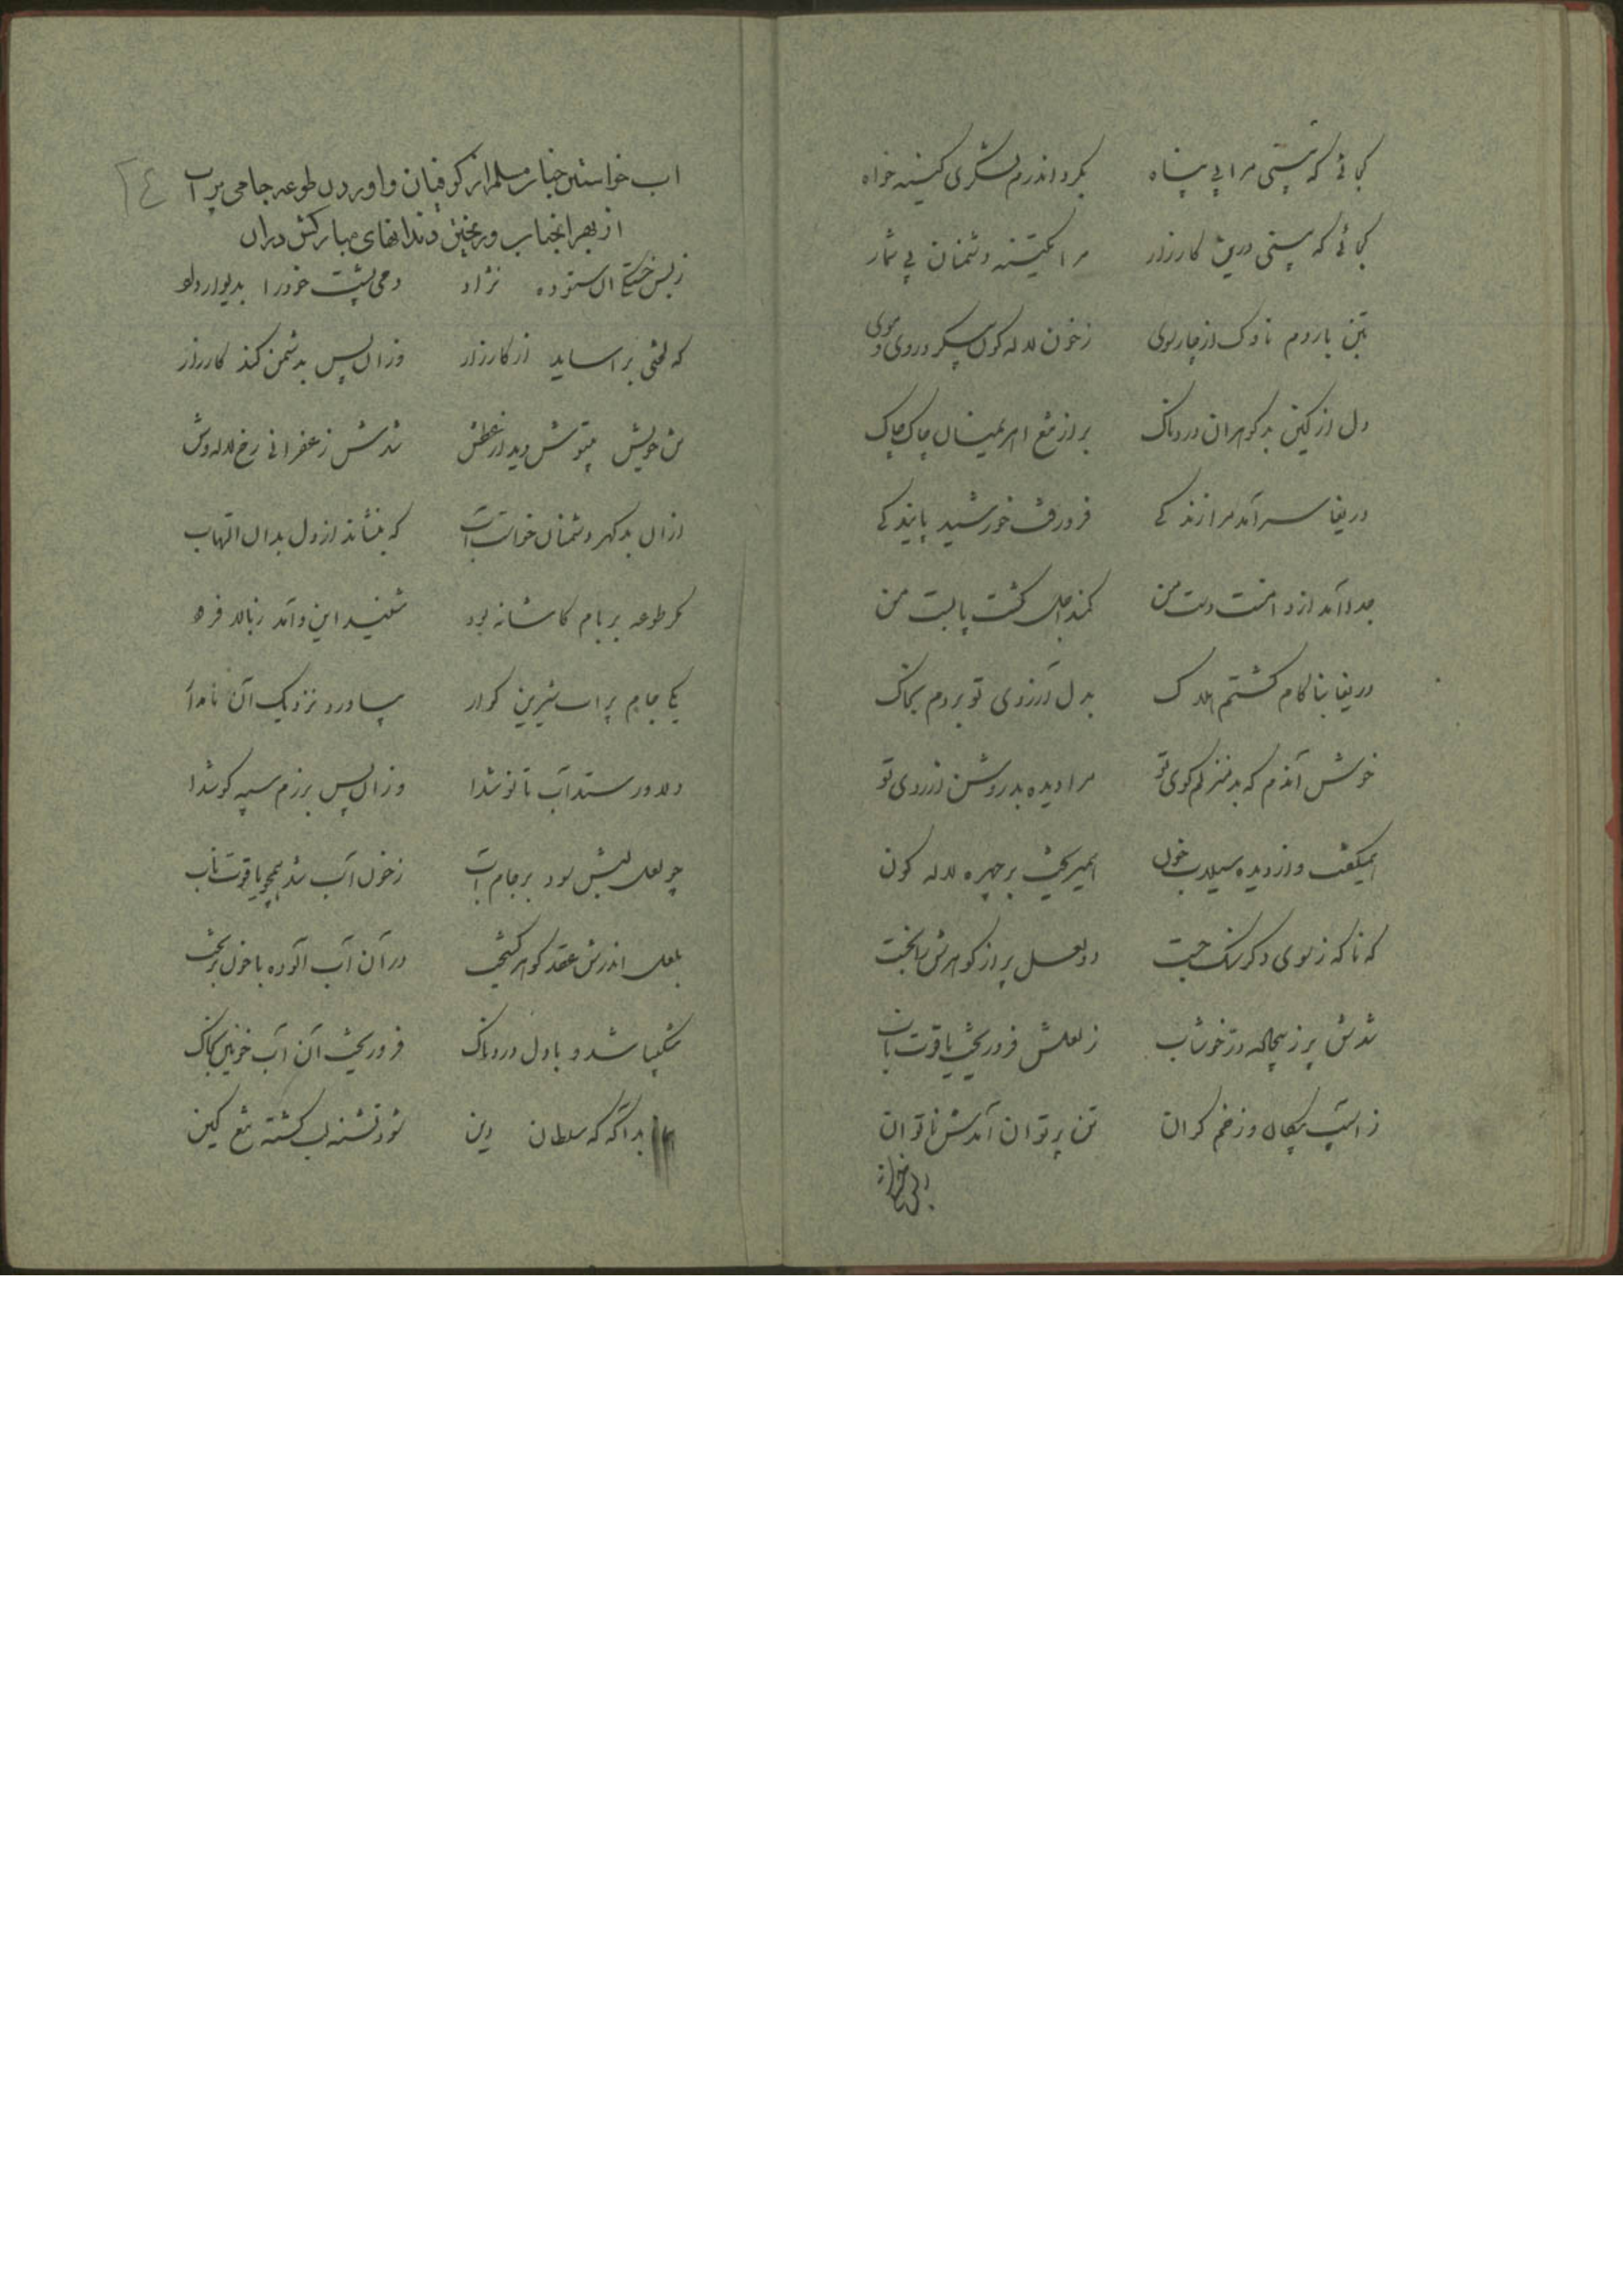 کجائی که بینی مرا بی پناه بگرد اندرم لشگری کینه خواه
کجائی که بینی درین کارزار مرا کینه دشمنان بی شمار
بتن باردم ناوک از چارسوی ز خون لاله گون پیکر و روی و موی
دل از کین بدگوهران دردناک بر از تیغ اهریمنان چاک چاک
دریغا سرآمد مرا زندگی فرو رفت خورشید پایندگی
جدا آمد از دامنت دست من کمند اجل گشت پابست من
دریغا بناکام گشتم هلاک بدل آرزوی تو بردم بخاک
خوش آندم که بد منزلم کوی تو مرا دیده بد روشن از روی تو
همیگفت و از دیده سیلاب خون همیریخت بر چهره لاله گون
که ناگه ز سوی دگر سنگ جست دو لعل پر از گوهرش
شدش پر ز بیجاده در خوشاب ز لعلش فرو ریخت یاقوت ناب
ز آسیب پیکان و زخم گران تن پر توان آمدش ناتوان
اب خواستن جناب مسلم از کوفیان و اوردن طوعه جامی پر آب
از بهر انجناب و ریختن دندانهای مبارکش دران
ز بس خستگی ان ستوده نژاد دمی پشت خود را بدیوار داد
که لختی بر اساید از کارزار وز ان پس بدشمن کند کارزار
تن خویش دید از عطش شدش زعفرانی رخ لاله وش
ازان بدگهر دشمنان خواست آب که بنشاند از دل بدان التهاب
مگر طوعه بر بام کاشانه بود شنید این و آمد ز بالا فرود
یکی جام پر اب شیرین گوار بیاورد نزدیک آن نامدار
دلاور ستد آب تا نوشدا وزان پس برزم سپه کوشدا
چو لعل لبش سود بر جام آب ز خون آب شد همچو یاقوت ناب
بلعل اندرش عقد گوهر گسیخت در آن آب آلوده با خون بریخت
شکیبا شد و با دل دردناک فرو ریخت آن آب خونین بخاک
بداگه که سلطان دین شود تشنه لب کشته تیغ کین